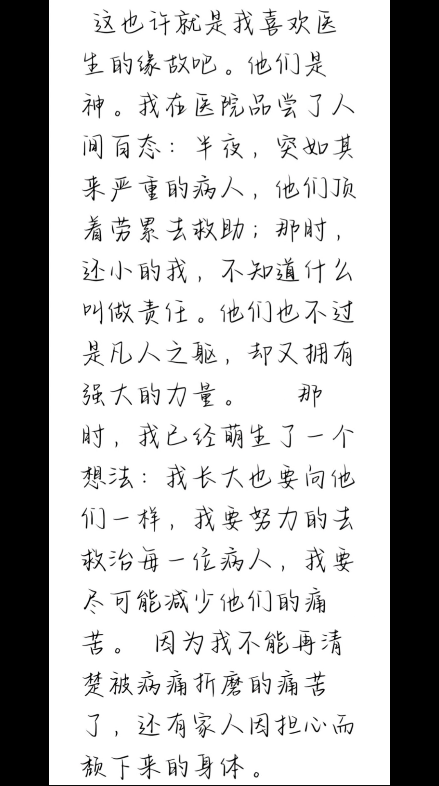 这也许就是我喜欢医
生的缘故吧。他们是
神。我在医院品尝了人
间百态：半夜，突如其
来严重的病人，他们顶
着劳累去救助；那时，
还小的我，不知道什么
叫做责任。他们也不过
是凡人之躯，却又拥有
强大的力量。 那
时，我已经萌生了一个
想法：我长大也要向他
们一样，我要努力的去
救治每一位病人，我要
尽可能减少他们的痛
苦。 因为我不能再清
楚被病痛折磨的痛苦
了，还有家人因担心而
颓下来的身体。